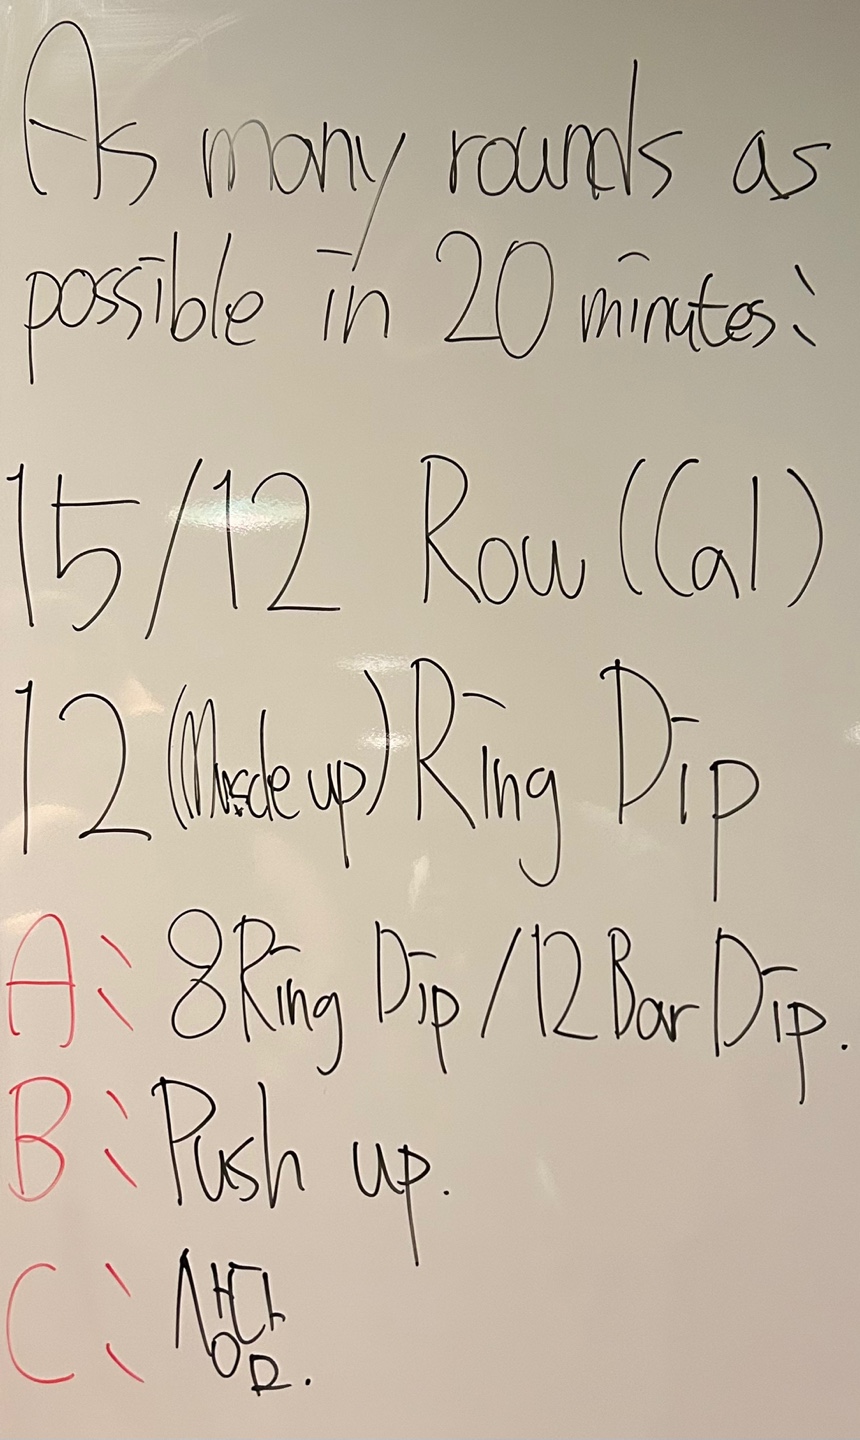 As many rounds as
possible in 20 minutes:
15/12 Row (Cal)
12 (Muscle up) Ring Dip
A: 8 Ring Dip / 12 Bar Dip.
B: Push up.
C: 상담.